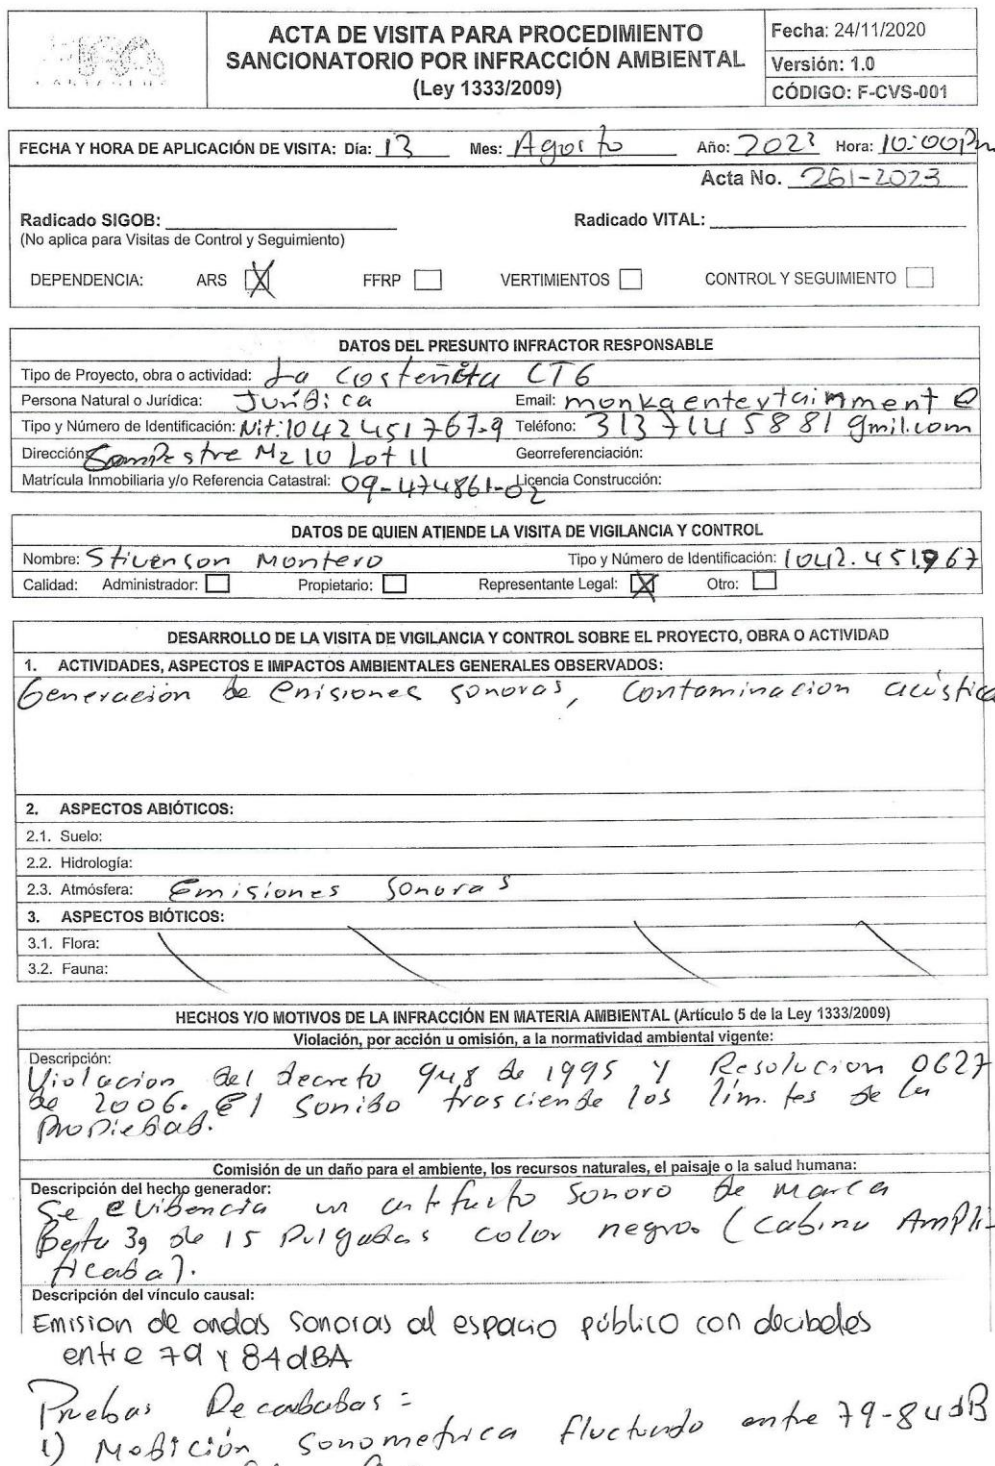 ACTA DE VISITA PARA PROCEDIMIENTO
SANCIONATORIO POR INFRACCIÓN AMBIENTAL
(Ley 1333/2009)
Fecha: 24/11/2020
Versión: 1.0
CÓDIGO: F-CVS-001
FECHA Y HORA DE APLICACIÓN DE VISITA: Día: 13 Mes: Agosto Año: 2023 Hora: 10:00Pm
Acta No. 261-2023
Radicado SIGOB: Radicado VITAL:
(No aplica para Visitas de Control y Seguimiento)
DEPENDENCIA: ARS X FFRP VERTIMIENTOS CONTROL Y SEGUIMIENTO
DATOS DEL PRESUNTO INFRACTOR RESPONSABLE
Tipo de Proyecto, obra o actividad: La Costeñita CTG
Persona Natural o Jurídica: Juridica Email: monkaentertaimment@
Tipo y Número de Identificación: Nit:1042451767-9 Teléfono: 3137145881 gmil.com
Dirección: Campestre Mz 10 Lot 11 Georreferenciación:
Matrícula Inmobiliaria y/o Referencia Catastral: 09-474861-02 Licencia Construcción:
DATOS DE QUIEN ATIENDE LA VISITA DE VIGILANCIA Y CONTROL
Nombre: Stivenson Montero Tipo y Número de Identificación: 1042.451.967
Calidad: Administrador: Propietario: Representante Legal: X Otro:
DESARROLLO DE LA VISITA DE VIGILANCIA Y CONTROL SOBRE EL PROYECTO, OBRA O ACTIVIDAD
1. ACTIVIDADES, ASPECTOS E IMPACTOS AMBIENTALES GENERALES OBSERVADOS:
Generacion de emisiones sonoras, contaminacion acústica
2. ASPECTOS ABIÓTICOS:
2.1. Suelo:
2.2. Hidrología:
2.3. Atmósfera: Emisiones Sonoras
3. ASPECTOS BIÓTICOS:
3.1. Flora:
3.2. Fauna:
HECHOS Y/O MOTIVOS DE LA INFRACCIÓN EN MATERIA AMBIENTAL (Artículo 5 de la Ley 1333/2009)
Violación, por acción u omisión, a la normatividad ambiental vigente:
Descripción:
Violacion del decreto 948 de 1995 y Resolucion 0627
de 2006. El sonido trasciende los limites de la
Propiedad.
Comisión de un daño para el ambiente, los recursos naturales, el paisaje o la salud humana:
Descripción del hecho generador:
Se evidencia un artefacto sonoro de marca
Beta 3 de 15 Pulgadas color negro (cabina Ampli-
ficada).
Descripción del vínculo causal:
Emision de ondas sonoras al espacio público con decibeles
entre 79 y 84dBA
Pruebas Recabadas =
1) Medición sonometrica fluctuando entre 79-84dB